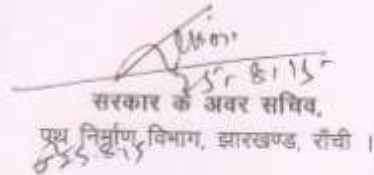 सरकार के अवर सचिव,
पथ निर्माण विभाग, झारखण्ड, राँची ।